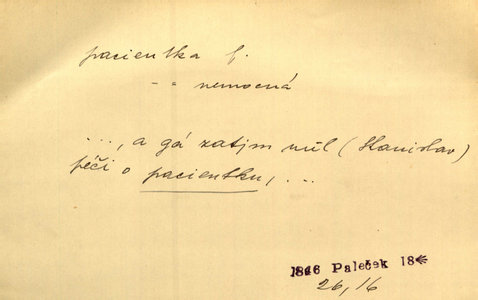 pacientka f.
-"- nemocná
..., a gá zatjm měl (Stanislav)
péči o pacientku, ...
1846 Paleček 18
26, 16